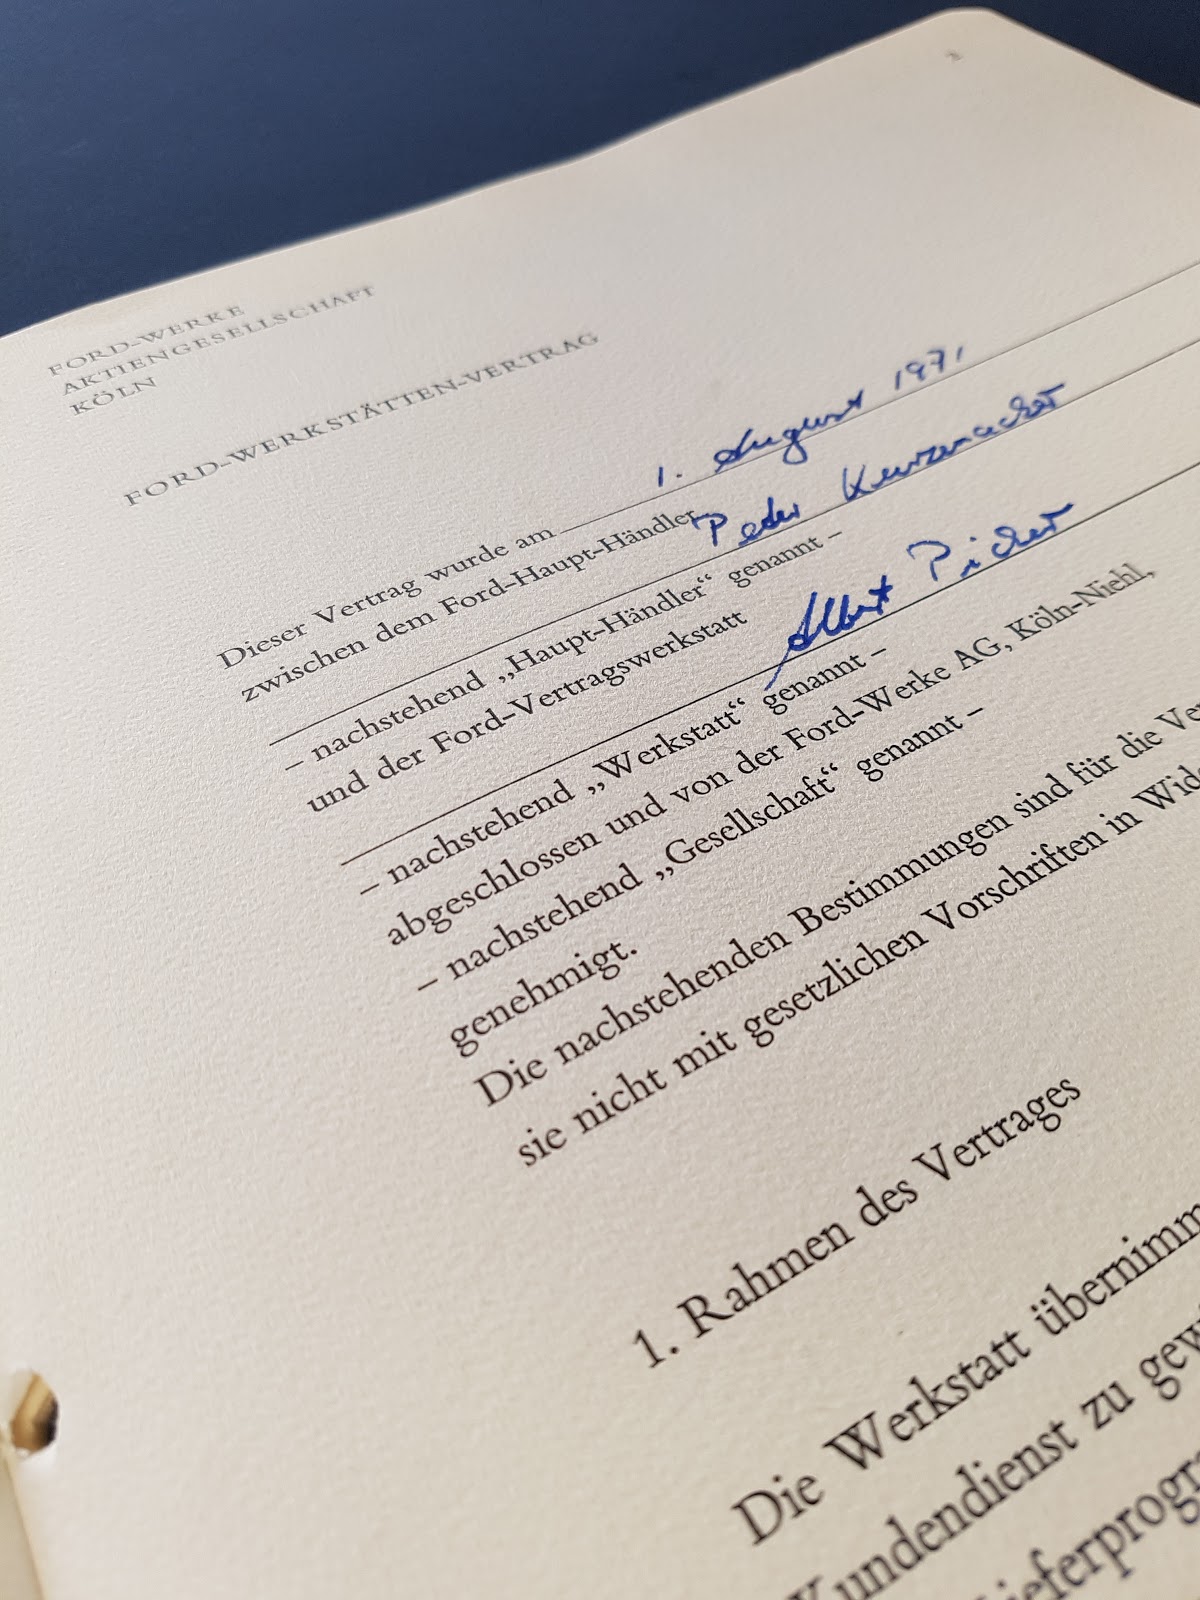 FORD-WERKE
AKTIENGESELLSCHAFT
KÖLN
FORD-WERKSTÄTTEN-VERTRAG
Dieser Vertrag wurde am 1. August 1971
zwischen dem Ford-Haupt-Händler Peter
– nachstehend „Haupt-Händler“ genannt –
und der Ford-Vertragswerkstatt Albert
– nachstehend „Werkstatt“ genannt –
abgeschlossen und von der Ford-Werke AG, Köln-Niehl,
– nachstehend „Gesellschaft“ genannt –
genehmigt.
Die nachstehenden Bestimmungen sind für die Ver
sie nicht mit gesetzlichen Vorschriften in Wid
1. Rahmen des Vertrages
Die Werkstatt übernimm
Kundendienst zu gew
Lieferprogr